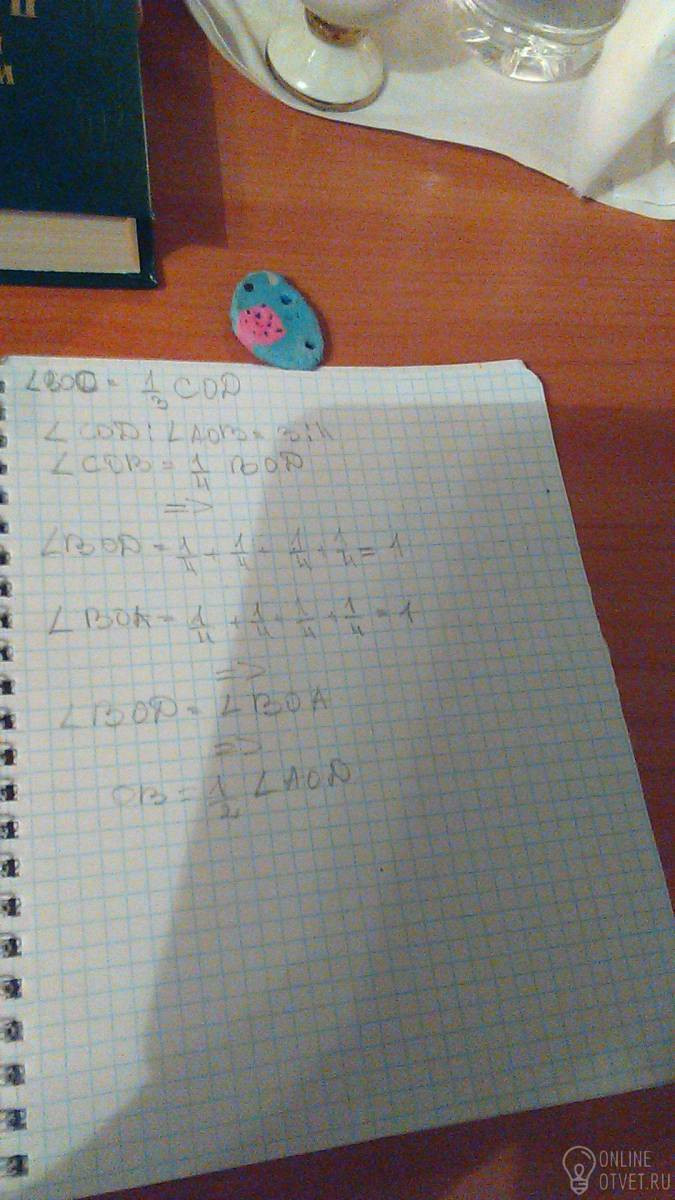 П
И
∠BOC = 1/3 COD
∠COD : ∠AOB = 3:4
∠COB = 1/4 BOD
=>
∠BOD = 1/4 + 1/4 + 1/4 + 1/4 = 1
∠BOA = 1/4 + 1/4 + 1/4 + 1/4 = 1
=>
∠BOD = ∠BOA
=>
OB = 1/2 ∠AOD
ONLINE
OTVET.RU